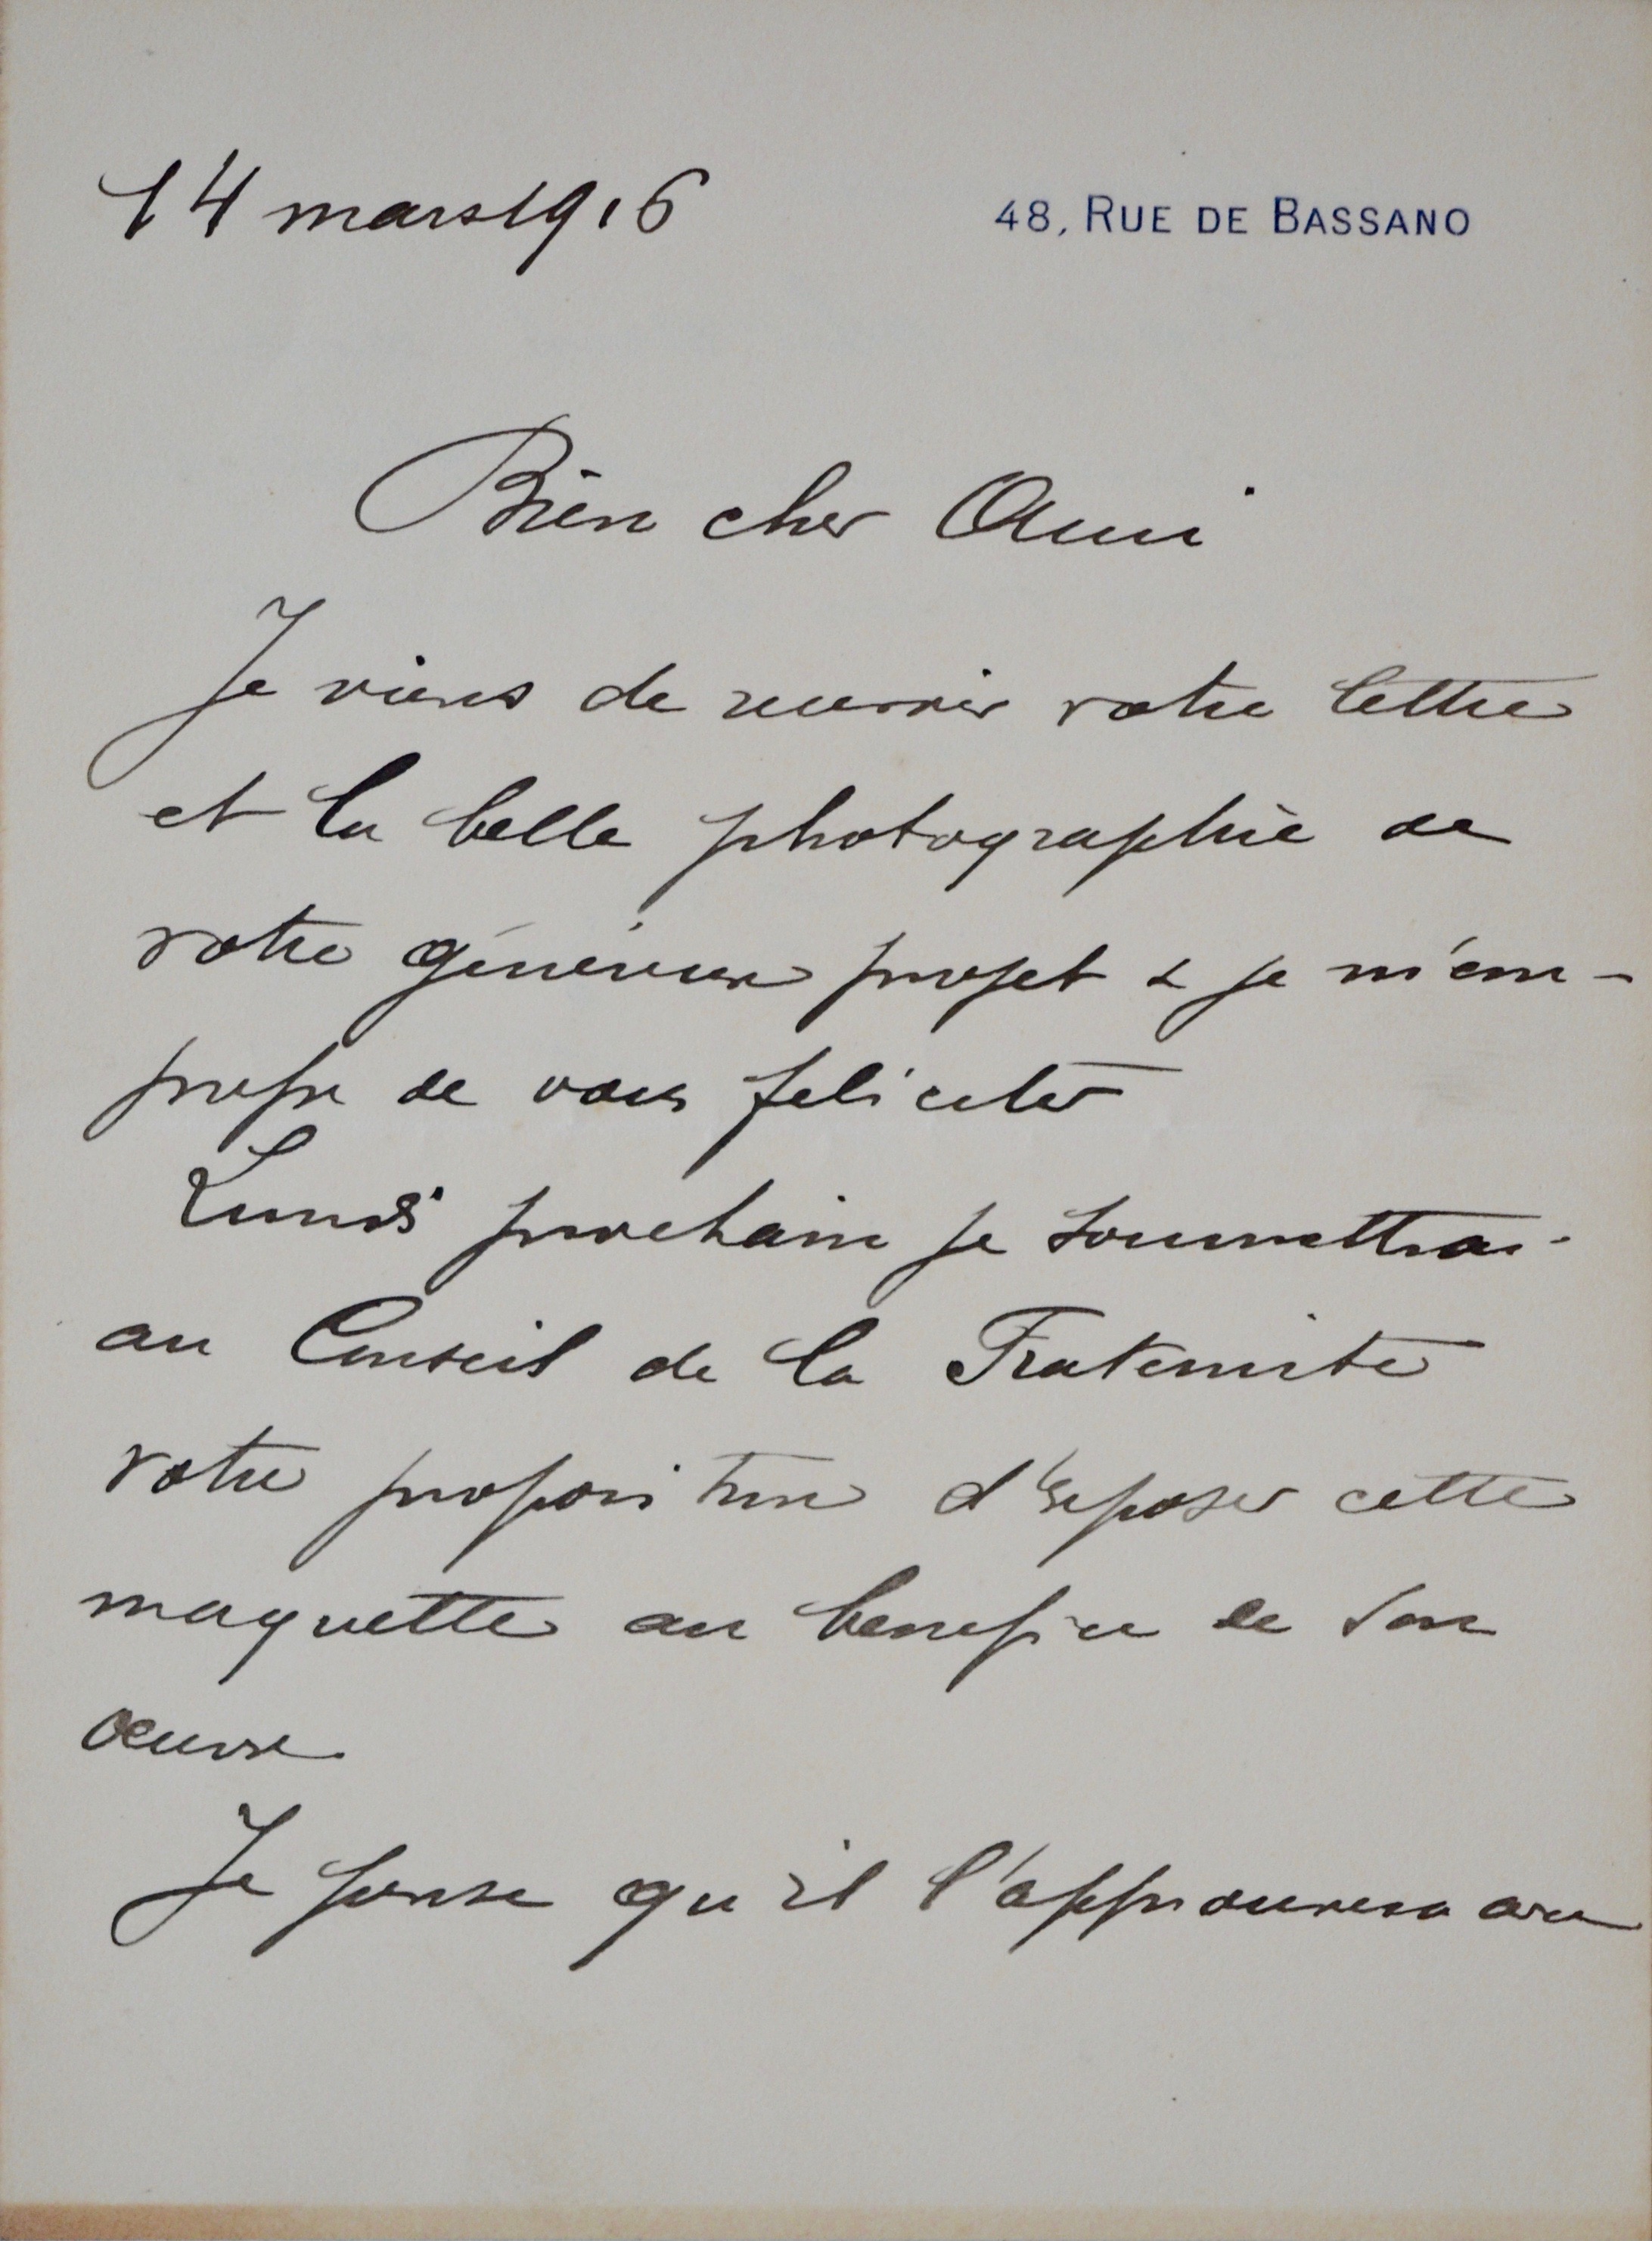 14 mars 1916
48, RUE DE BASSANO
Bien cher Ami
Je viens de recevoir votre lettre
et la belle photographie de
votre généreux projet & je m'em-
presse de vous feliciter
Lundi prochain je soumettrai
au Conseil de la Fraternité
votre proposition d'exposer cette
maquette au benefice de son
œuvre.
Je pense qu'il l'approuvera avec